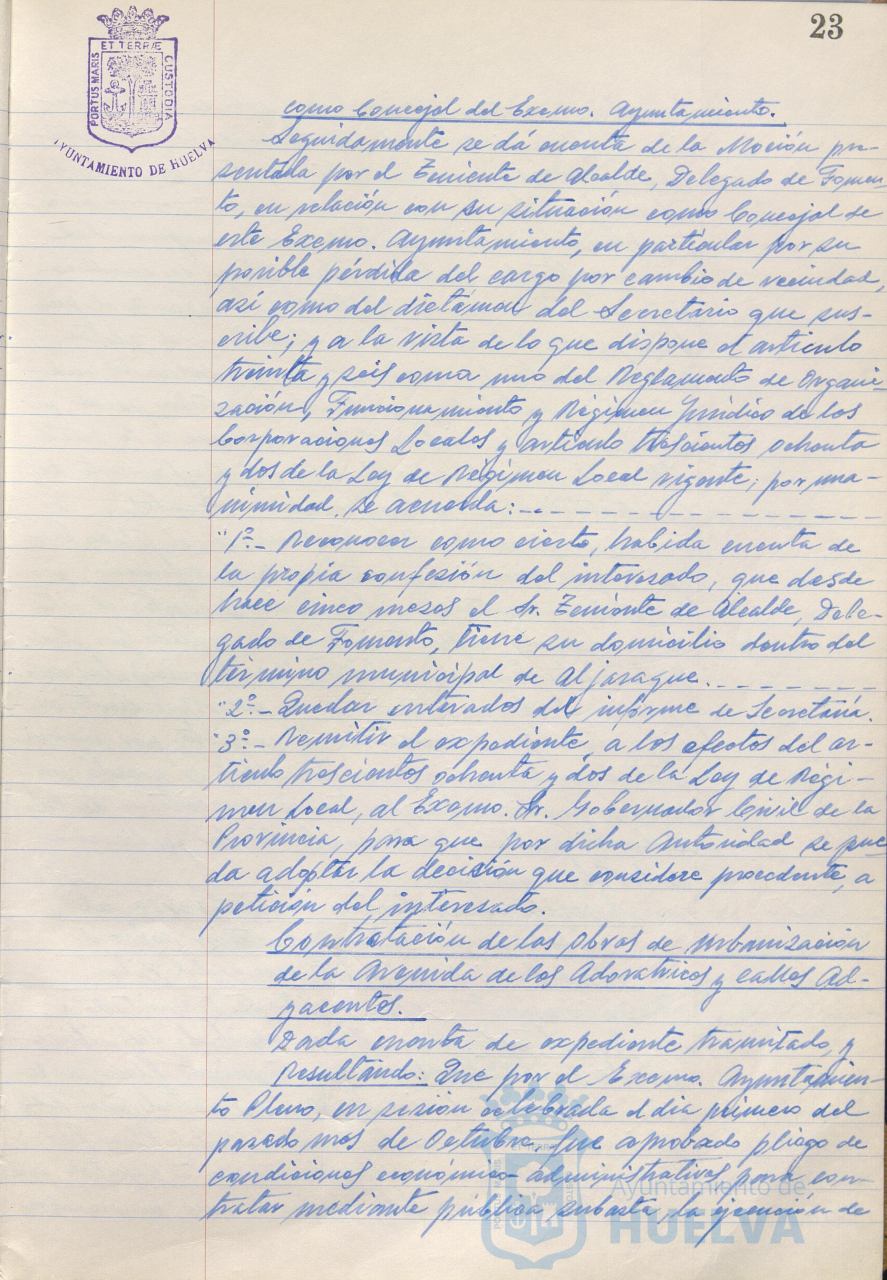 23
ET TERRÆ
PORTUS MARIS
CUSTODIA
AYUNTAMIENTO DE HUELVA
como Concejal del Excmo. Ayuntamiento.
Seguidamente se dá cuenta de la Moción pre-
sentada por el Teniente de Alcalde, Delegado de Fomen-
to, en relación con su situación como Concejal de
este Excmo. Ayuntamiento, en particular por su
posible pérdida del cargo por cambio de vecindad,
así como del dictámen del Secretario que sus-
cribe; y a la vista de lo que dispone el artículo
treinta y seis coma uno del Reglamento de Organi-
zación, Funcionamiento y Régimen Jurídico de las
Corporaciones Locales y artículo trescientos ochenta
y dos de la Ley de Régimen Local vigente; por una-
nimidad, se acuerda:
"1º.- Reconocer como cierto, habida cuenta de
la propia confesión del interesado, que desde
hace cinco meses el Sr. Teniente de Alcalde, Dele-
gado de Fomento, tiene su domicilio dentro del
término municipal de Aljaraque.
"2º.- Quedar enterados del informe de Secretaría.
"3º.- Remitir el expediente, a los efectos del ar-
tículo trescientos ochenta y dos de la Ley de Régi-
men Local, al Excmo. Sr. Gobernador Civil de la
Provincia, para que por dicha Autoridad se pue
da adoptar la decisión que considere procedente, a
petición del interesado.
Contratación de las obras de urbanización
de la Avenida de las Adoratrices y calles Ad-
yacentes.
Dada cuenta de expediente tramitado, y
Resultando: Que por el Excmo. Ayuntamien-
to Pleno, en sesión celebrada el día primero del
pasado mes de Octubre, fue aprobado pliego de
condiciones económico-administrativas para con-
tratar mediante pública subasta, la ejecución de
Ayuntamiento de
HUELVA